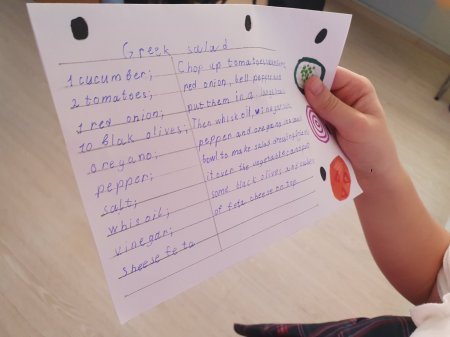 Greek salad
1 cucumber;
2 tomatoes;
1 red onion;
10 blak olives;
oregano;
pepper;
salt;
whis oil;
vinegar;
sheese feta
Chop up tomatoes,
red onion, bell pepper and
put them in a
Then whisk oil, vinegar,
pepper and oregano
bowl to make salad dressing.
it over the vegetables and put
some black olives and cubes
of feta cheese on top